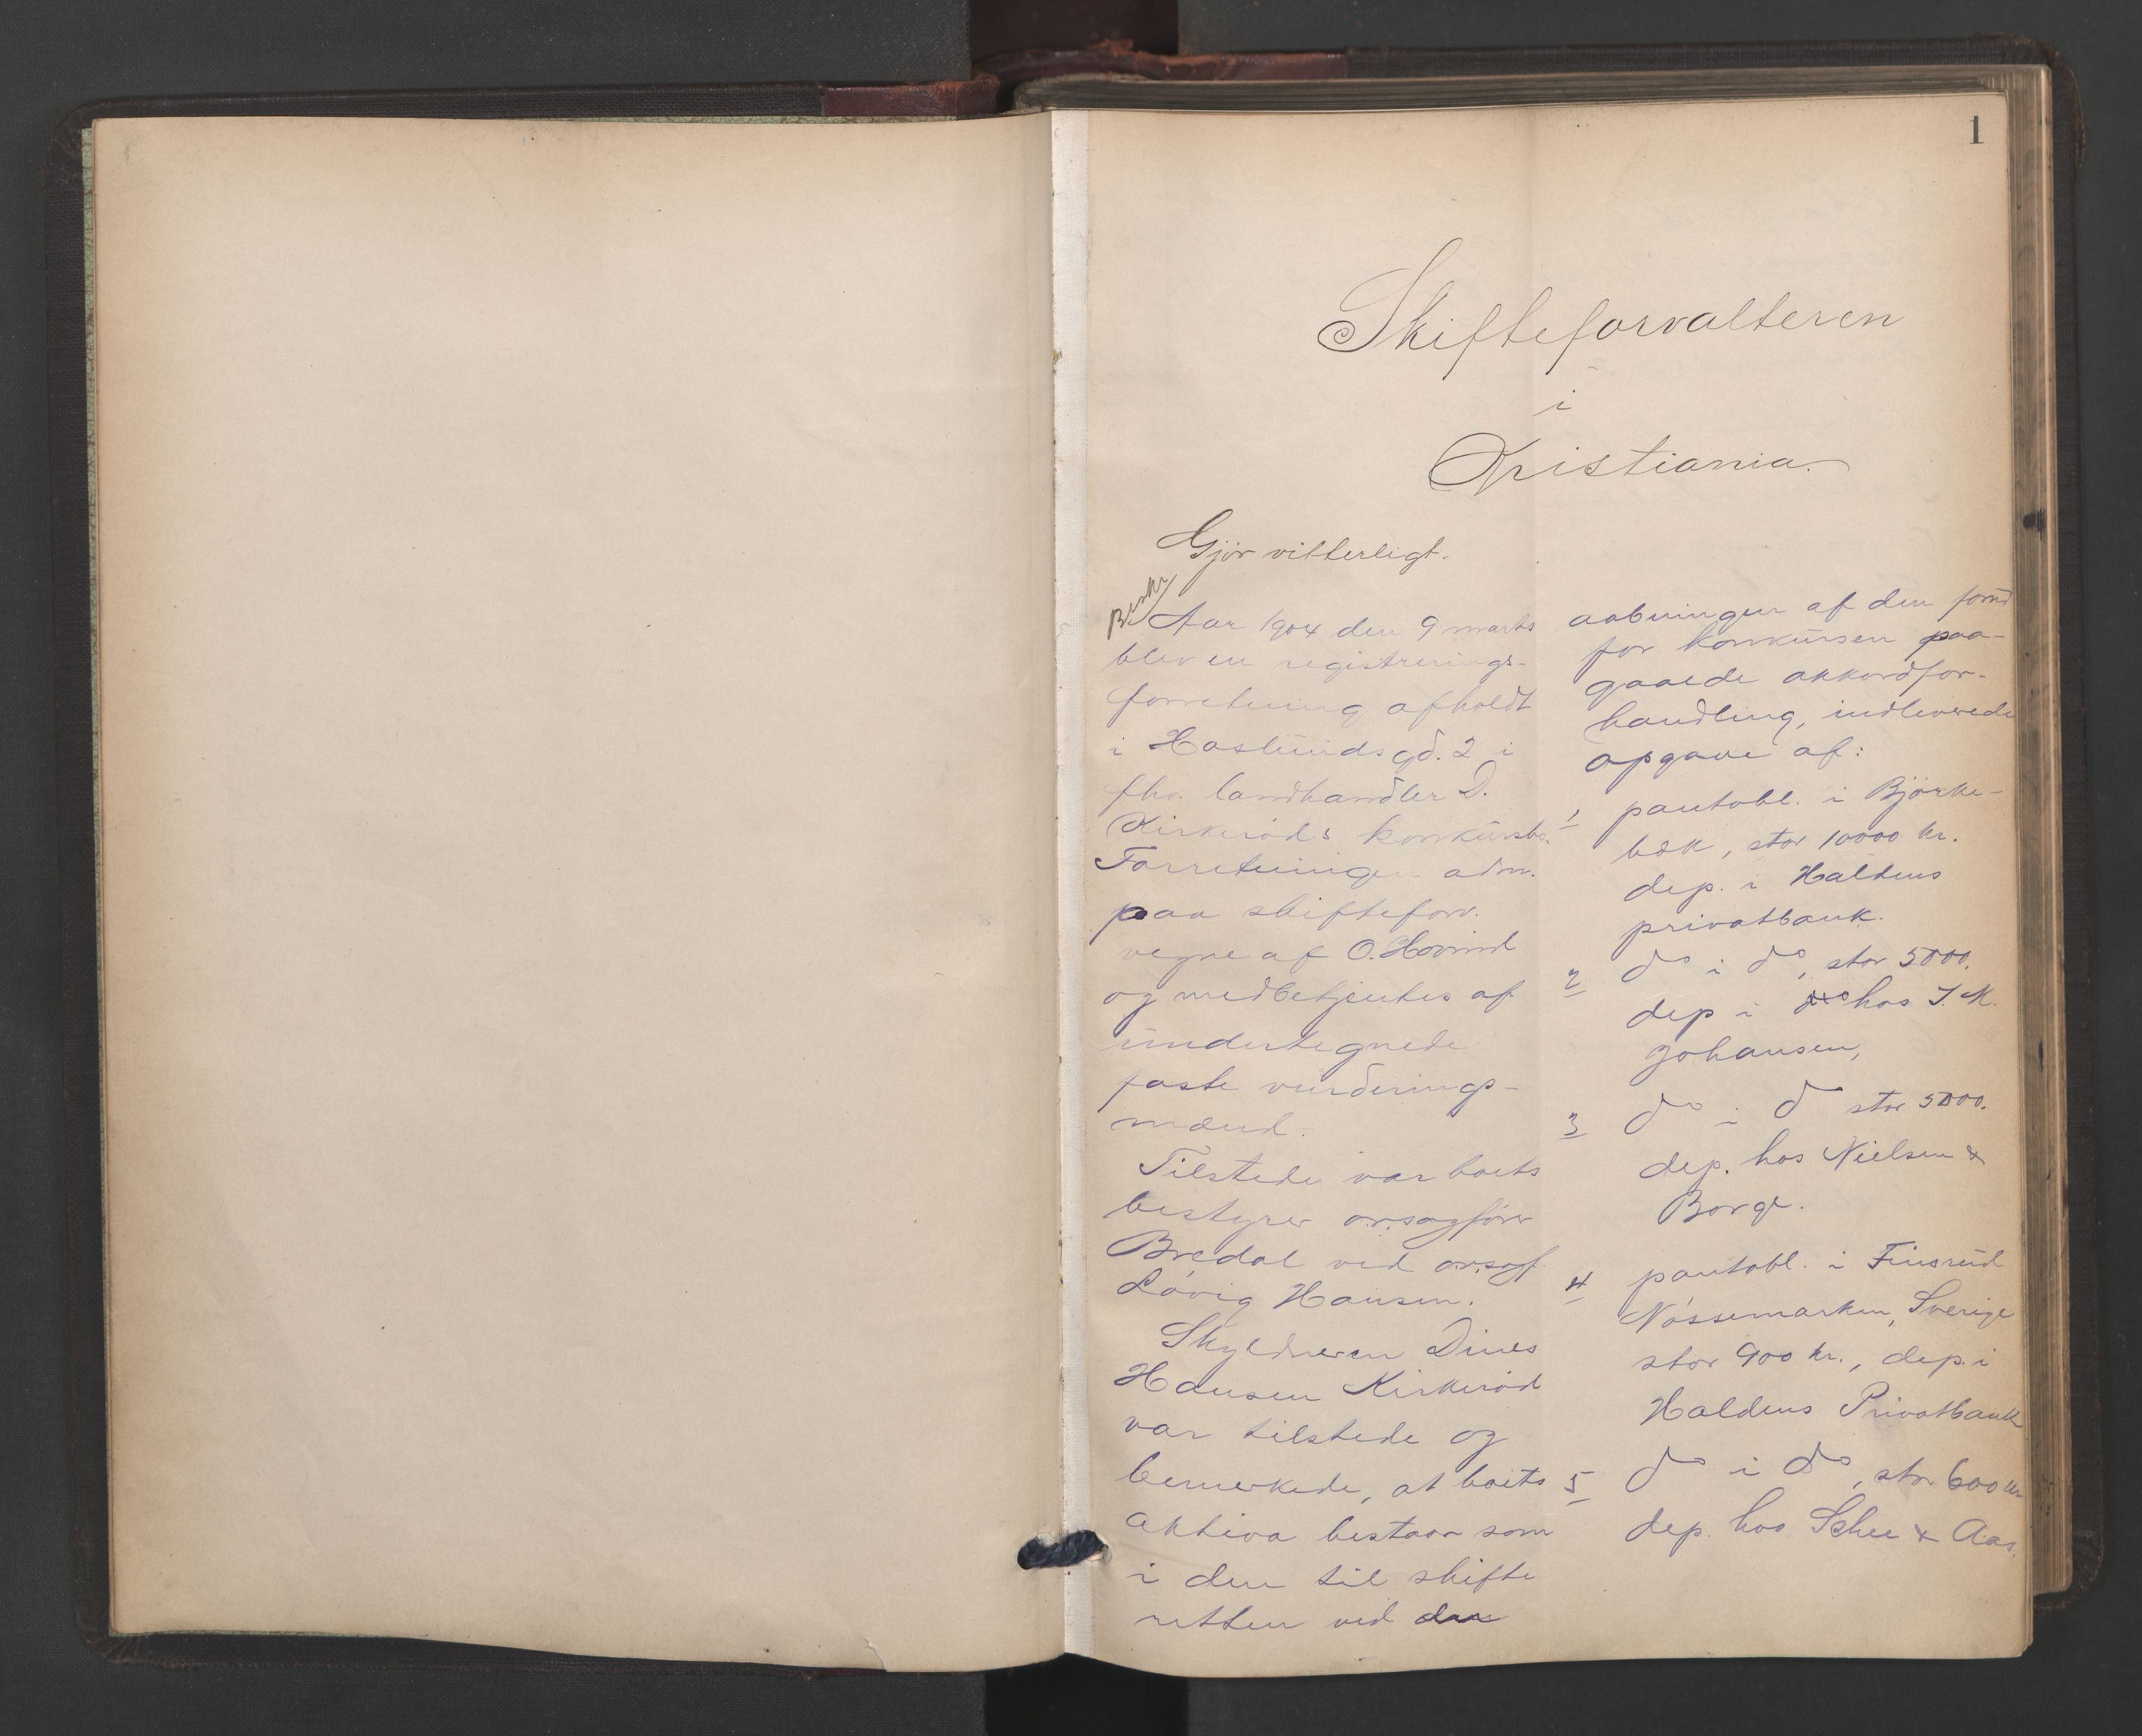 1
Skifteforvalteren
i
Kristiania.
Gjör vitterligt.
Beskr
Aar 1904 den 9 marts
blev en registrerings-
forretning afholdt
i Haslundsgd. 2 i
fhv. landhandler D.
Kirkeröds konkursbo.
Forretningen adm.
paa skifteforv.
vegne af O. Hovind
og medbetjentes af
undertegnede
faste vurderings-
mænd.
Tilstede var boets
bestyrer o.r.sagförer
Bredal ved o.r.sagf.
Lövig Hansen.
Skyldneren Dines
Hansen Kirkeröd
var tilstede og
bemerkede, at boets
aktiva bestaar som
i den til skifte
retten ved den
aabningen af den forud
for konkursen paa-
gaaede akkordfor-
handling, indleverede
opgave af:
1 pantobl. i Björke-
bæk, stor 10000 kr.
dep. i Haldens
privatbank.
2 do i do, stor 5000.
dep i hos J. M.
Johansen,
3 do i do stor 5000.
dep. hos Nielsen &
Borge.
4 pantobl. i Finsrud
Nössemarken, Sverige
stor 900 kr., dep. i
Haldens Privatbank
5 do i do, stor 600 kr
dep. hos Schee & Aas.